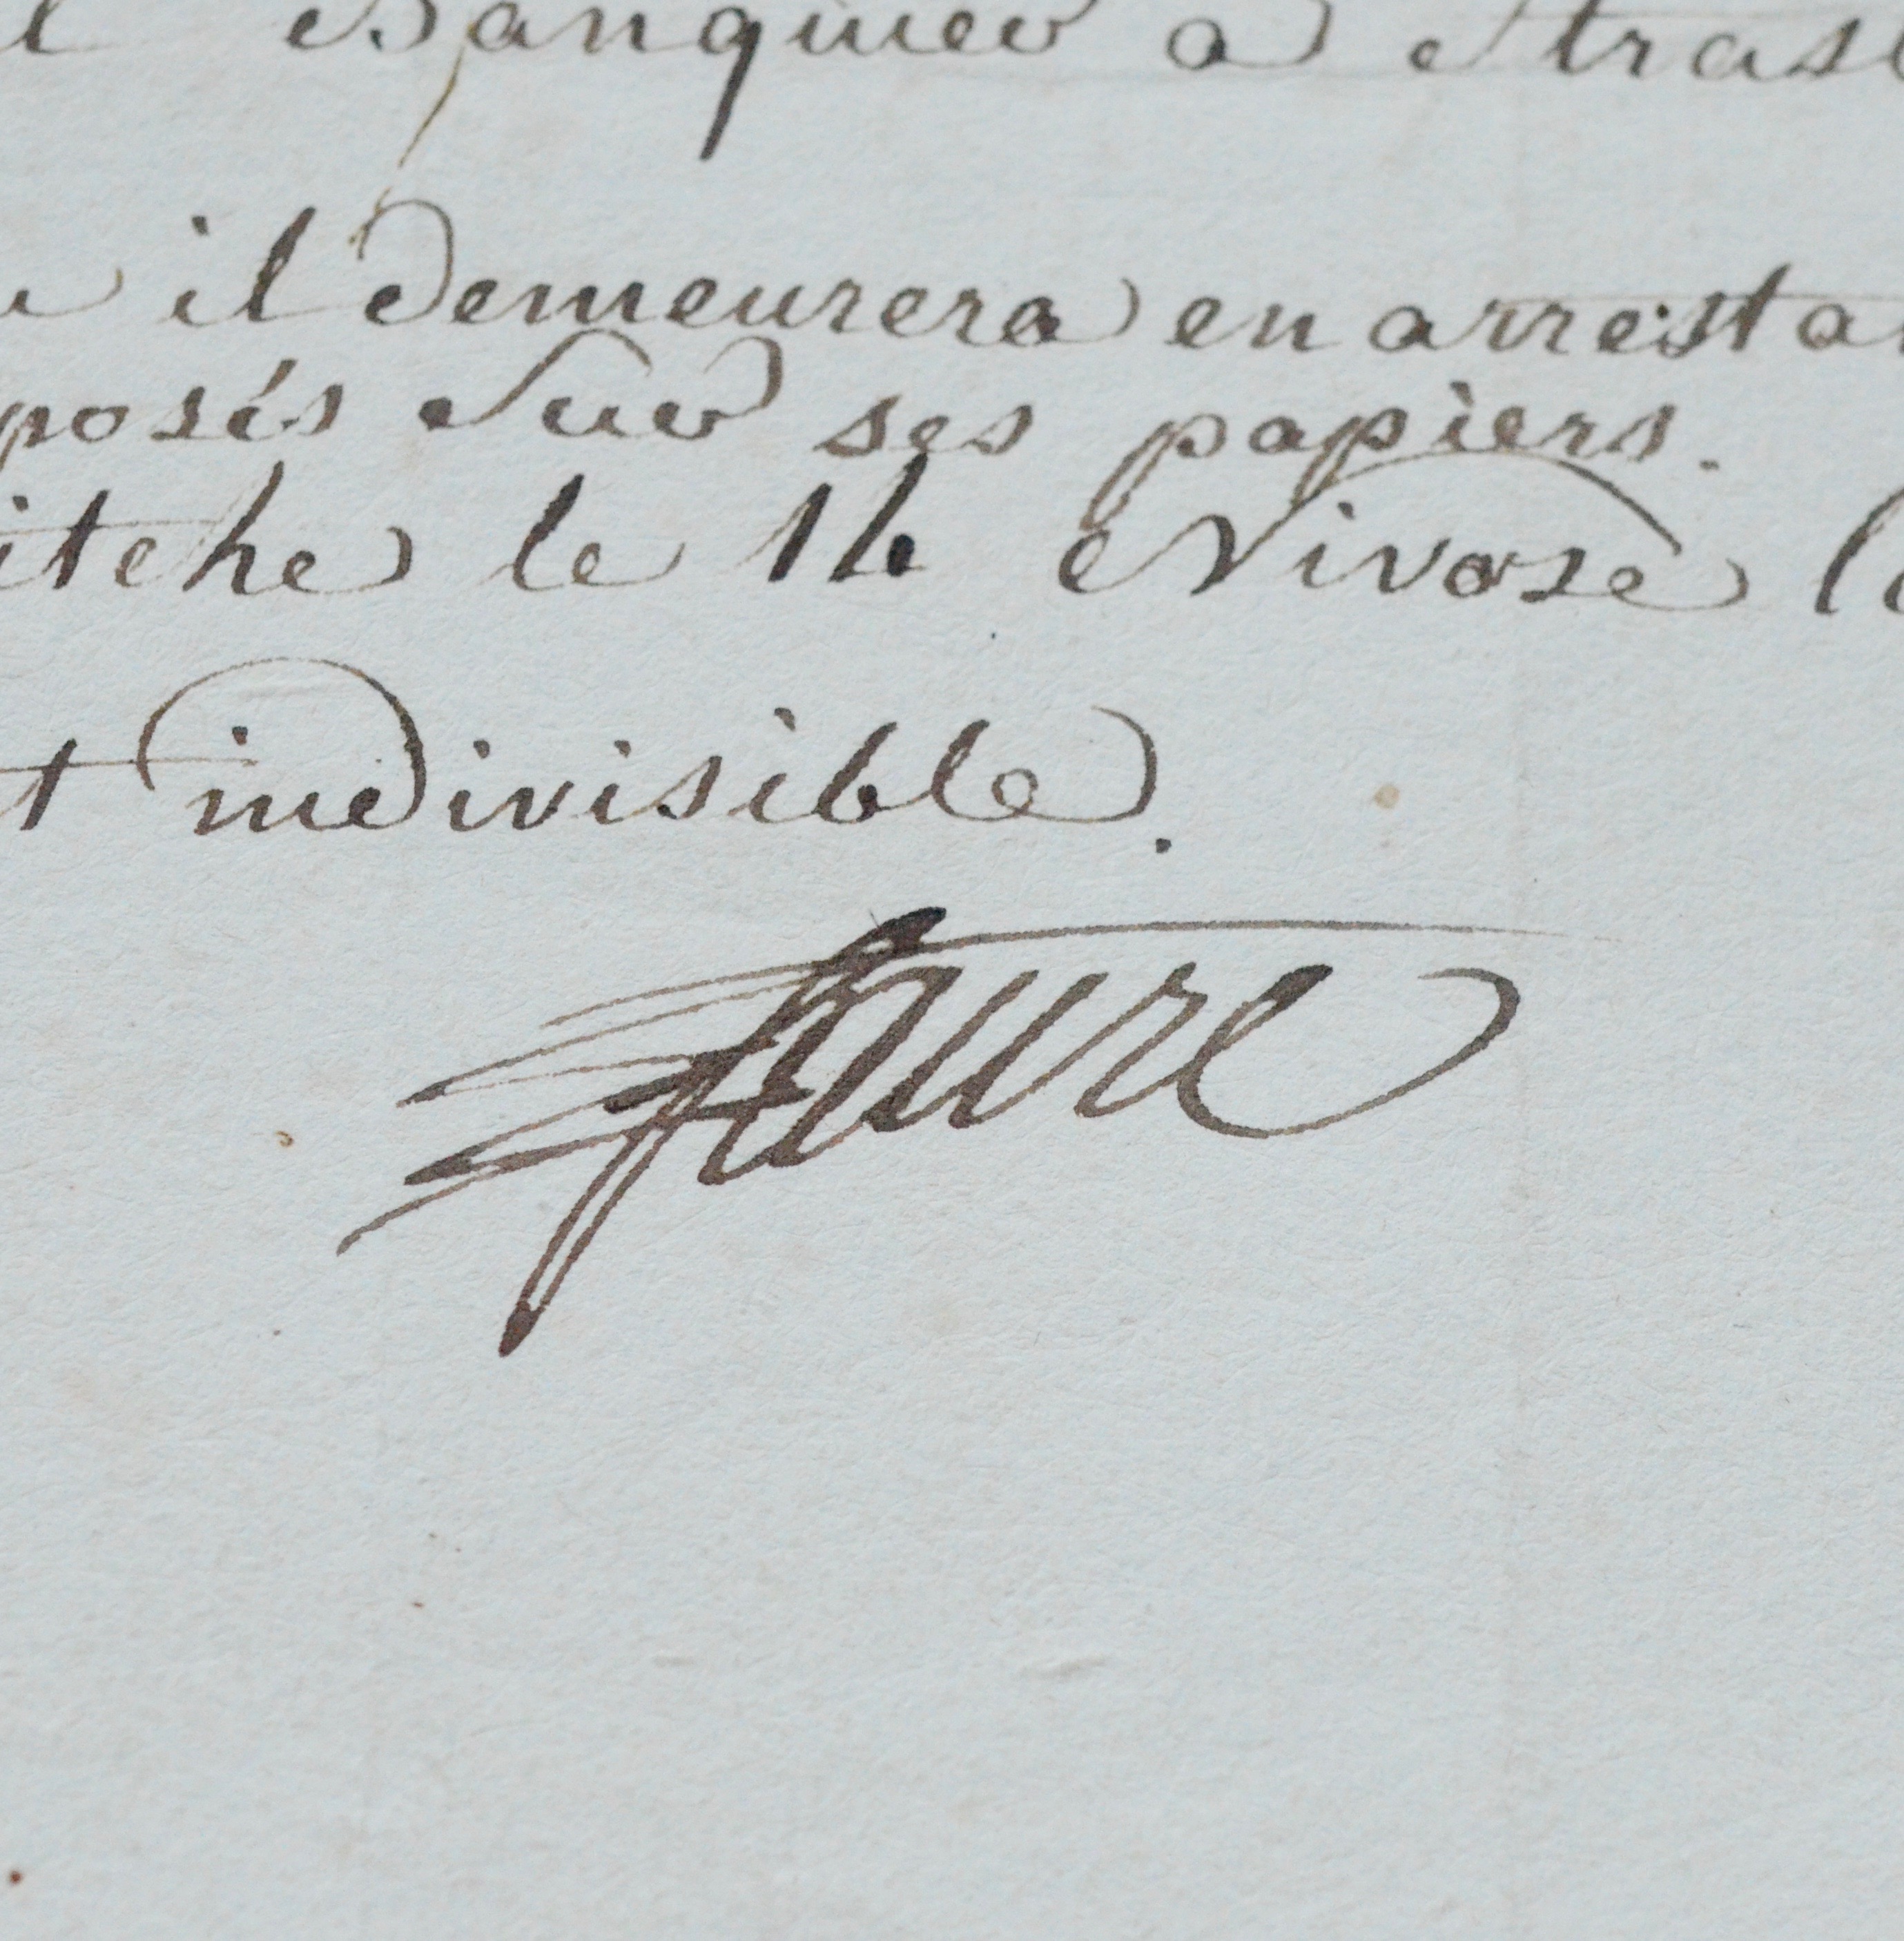 Banquier a Stras
il demeurera en arresta
posés Sur ses papiers.
itche le 14 Nivose
t indivisible.
Faure